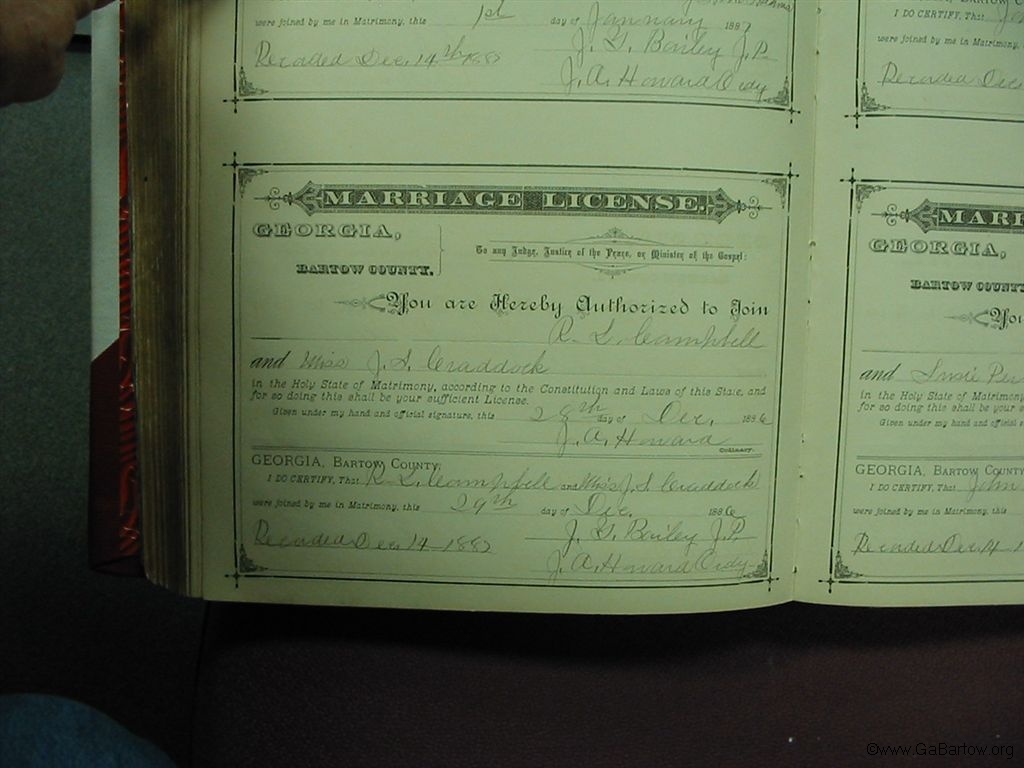 were joined by me in Matrimony, this 1st day of January 1887
J. G. Bailey J.P.
Recorded Dec. 14th
J. A. Howard Ordy
MARRIAGE LICENSE.
GEORGIA,
BARTOW COUNTY.
To any Judge, Justice of the Peace, or Minister of the Gospel:
You are Hereby Authorized to Join
R. L. Campbell
and Miss J. S. Craddock
in the Holy State of Matrimony, according to the Constitution and Laws of this State, and
for so doing this shall be your sufficient License.
Given under my hand and official signature, this 28th day of Dec. 1886
J. A. Howard
Ordinary.
GEORGIA, BARTOW COUNTY,
I DO CERTIFY, That R L Campbell and Miss J. S Craddock
were joined by me in Matrimony, this 29th day of Dec. 1886
J. G. Bailey J.P.
Recorded Dec. 14 1887
J. A. Howard Ordy
I DO CERTIFY, That
were joined by me in Matrimony,
Recorded Dec
MARR
GEORGIA,
BARTOW COUNTY
You
and Susie
in the Holy State of Matrimony
for so doing this shall be your s
Given under my hand and official
GEORGIA, BARTOW COUNTY
I DO CERTIFY, That John
were joined by me in Matrimony, this
Recorded Dec. 14
©www.GaBartow.org